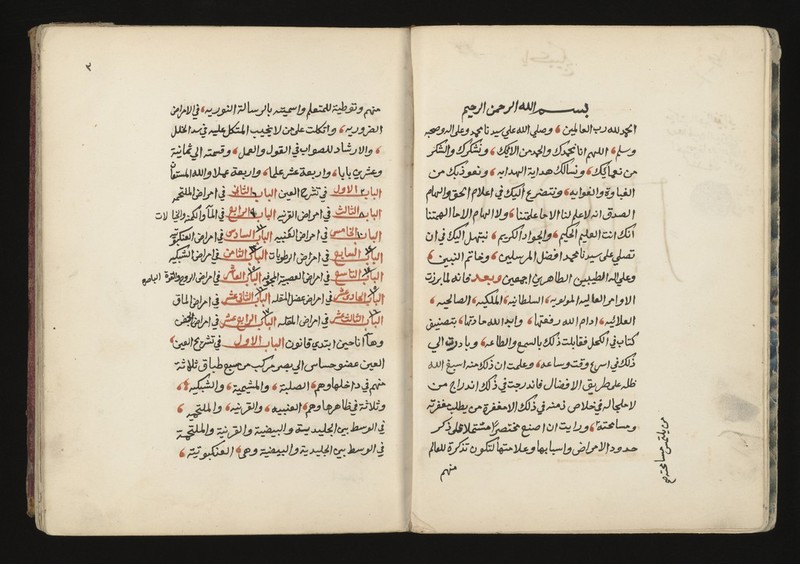 بسم الله الرحمن الرحيم
الحمد لله رب العالمين وصلى الله على سيدنا محمد وعلى اله وصحبه
وسلم اللهم انا نحمدك والحمد من الائك ونشكرك والشكر
من نعمائك ونسالك هداية الهدايه ونعوذ بك من
الغباوة والغوايه ونتضرع اليك في اعلام الحق والهام
الصدق انه لا علم لنا الا ما علمتنا ولا الهام الا ما الهمتنا
انك انت العليم الحكيم والجواد الكريم نبتهل اليك في ان
تصلي على سيدنا محمد افضل المرسلين وخاتم النبيين
وعلى اله الطيبين الطاهرين اجمعين وبعد فانه لما برزت
الاوامر العاليه المولويه السلطانيه الملكيه الصالحيه
العلائيه ادام الله رفعتها وايد الله مادتها بتصنيف
كتاب في الكحل فقابلت ذلك بالسمع والطاعه وبادرت الى
ذلك في اسرع وقت وساعه وعلمت ان ذلك منه اسبغ الله
ظله على طريق الافضال فاندرجت في ذلك اندراج من
لا حلحاله في خلاص ذمته في ذلك الا مغفرة من يطلب مغفرته
ومسامحته ورايت ان اصنع مختصرا مشتملا على ذكر
حدود الامراض واسبابها وعلامتها لتكون تذكرة للعالم
منهم
منهم وتوطية للمتعلم واسميته بالرسالة النوريه في الامراض
الضروريه واتكلت على من لا يخيب المتكل عليه في سد الخلل
والارشاد للصواب في القول والعمل وقسمته الى ثمانية
وعشرين بابا واربعة عشر علما واربعة عملا والله المستعان
الباب الاول في تشريح العين الباب الثاني في امراض الملتحمه
الباب الثالث في امراض القرنيه الباب الرابع في الماء والكمنه والخيالات
الباب الخامس في امراض العنبيه الباب السادس في امراض العنكبوتيه
الباب السابع في امراض الرطوبات الباب الثامن في امراض الشبكيه
الباب التاسع في امراض العصبة المجوفه الباب العاشر في امراض الروح والقوة الباصره
الباب الحادي عشر في امراض عضل المقله الباب الثاني عشر في امراض الماق
الباب الثالث عشر في امراض المقله الباب الرابع عشر في امراض الجفن
وها انا حين ابتدي قانون الباب الاول في تشريح العين
العين عضو حساس الى بصر مركب من سبع طباق ثلاثة
منهم في داخلها وهم الصلبة والمشيمية والشبكيه
وثلاثة في ظاهرها وهم العنبيه والقرنيه والملتحمة
في الوسط بين الجليدية والبيضية والقرنية والملتحمة
في الوسط بين الجليدية والبيضية وهي العنكبوتية